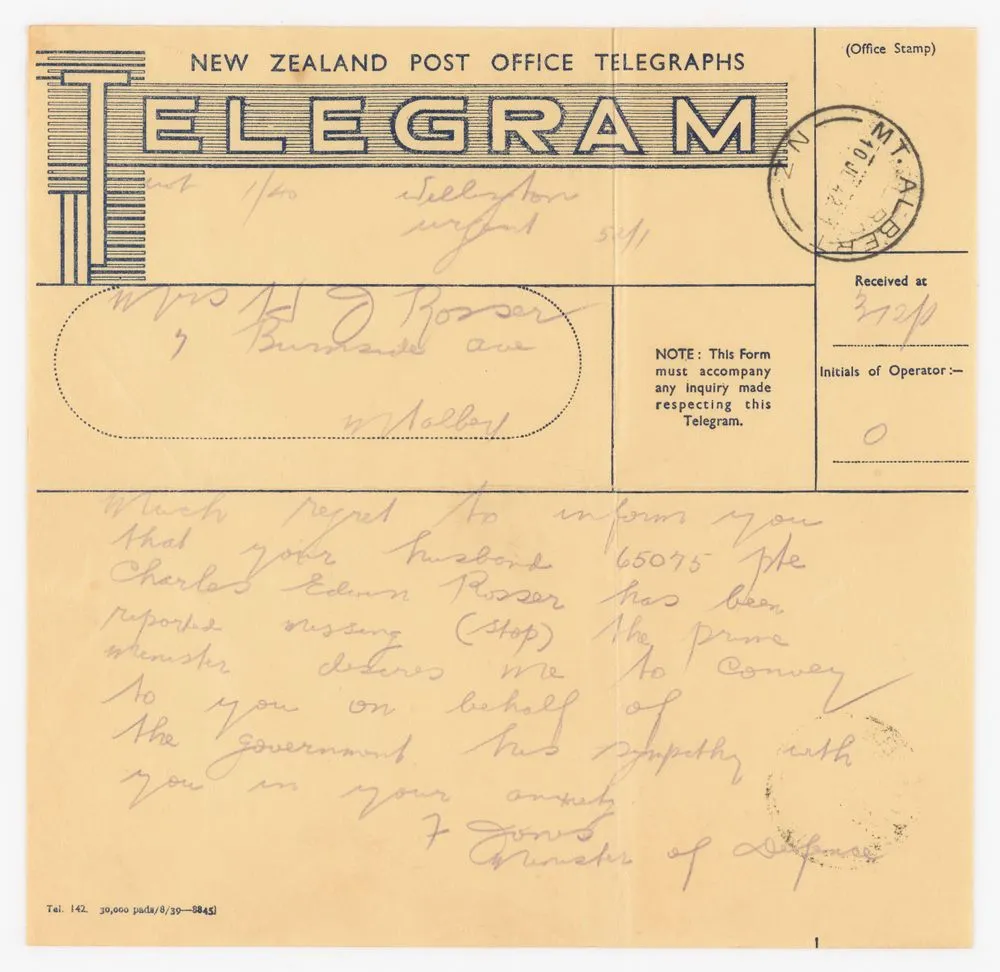 NEW ZEALAND POST OFFICE TELEGRAPHS
TELEGRAM
(Office Stamp)
MT. ALBERT N.Z.
10 JL 42
1/40 Wellington
urgent 52/1
Received at
312p
Mrs H J Rosser
7 Burnside ave
Mtalbert
NOTE: This Form
must accompany
any inquiry made
respecting this
Telegram.
Initials of Operator:—
O
Much regret to inform you
that your husband 65075 pte
Charles Edwin Rosser has been
reported missing (stop) the prime
minister desires me to convey
to you on behalf of
the government his sympathy with
you in your anxiety
F Jones
Minister of Defence
Tel. 142. 30,000 pads/8/39—8845]